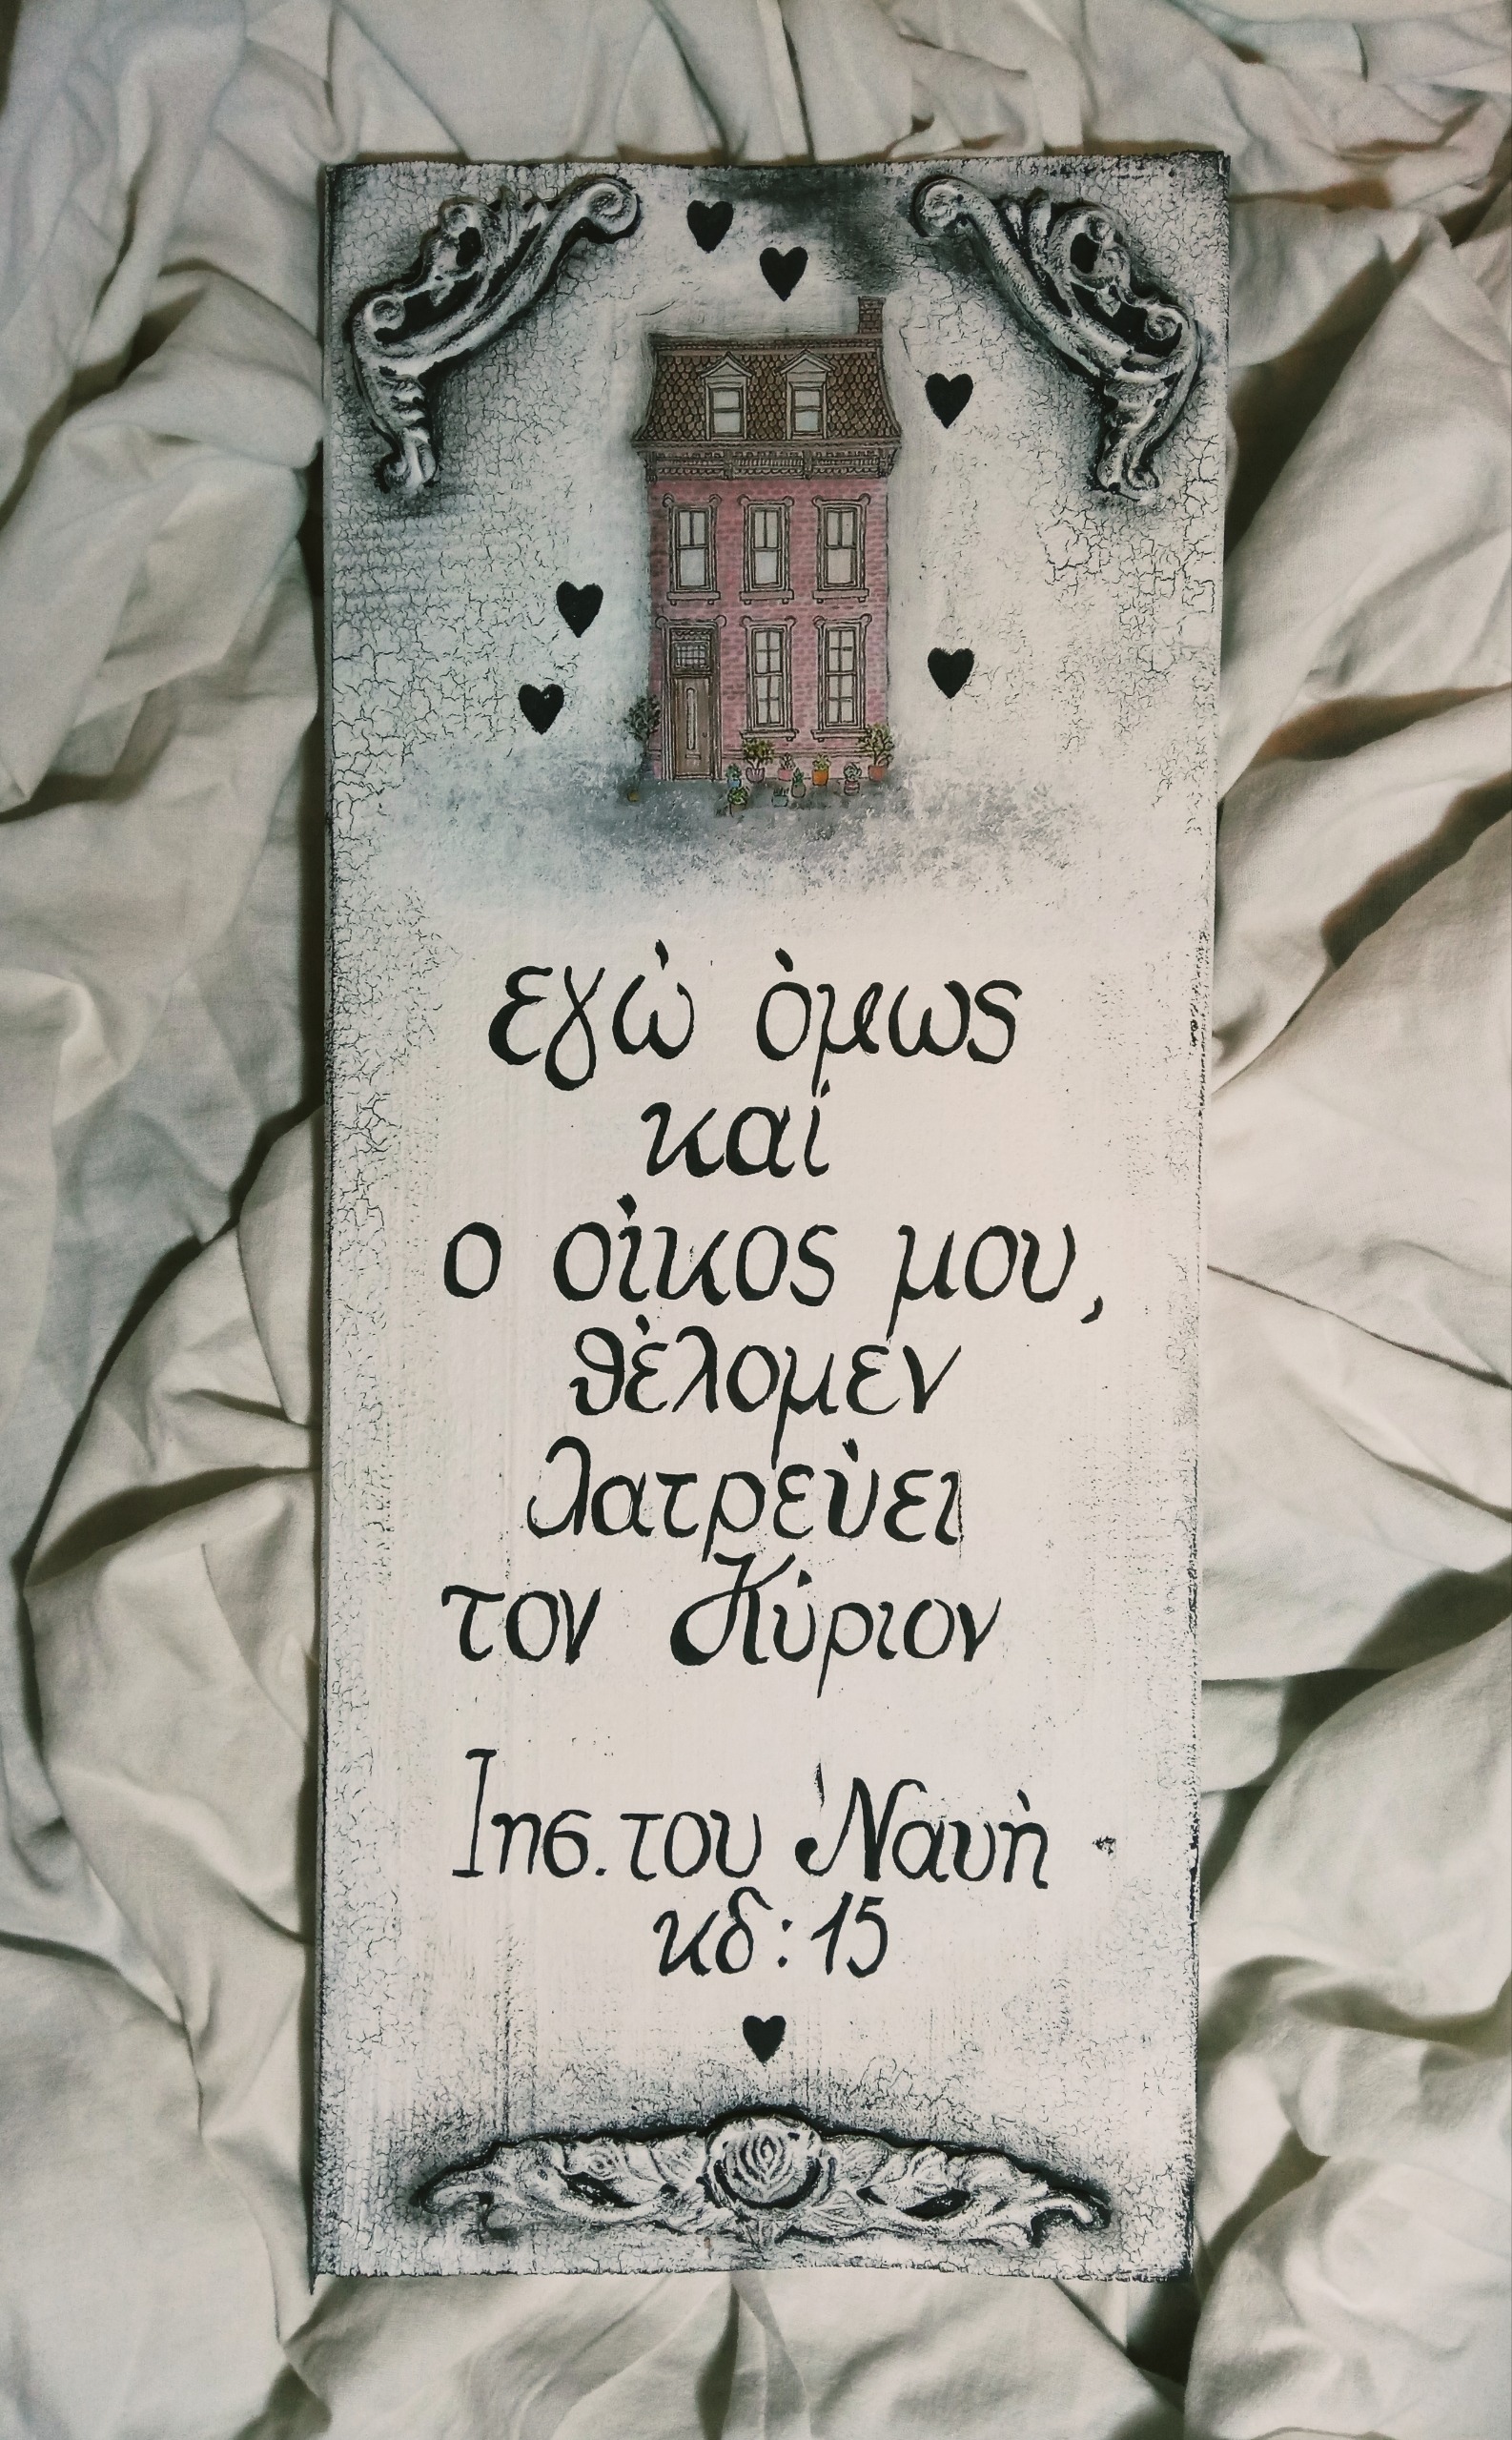 εγώ όμως
καί
ο οίκος μου,
θέλομεν
λατρεύει
τον Κύριον
Ιησ. του Ναυή
κδ: 15